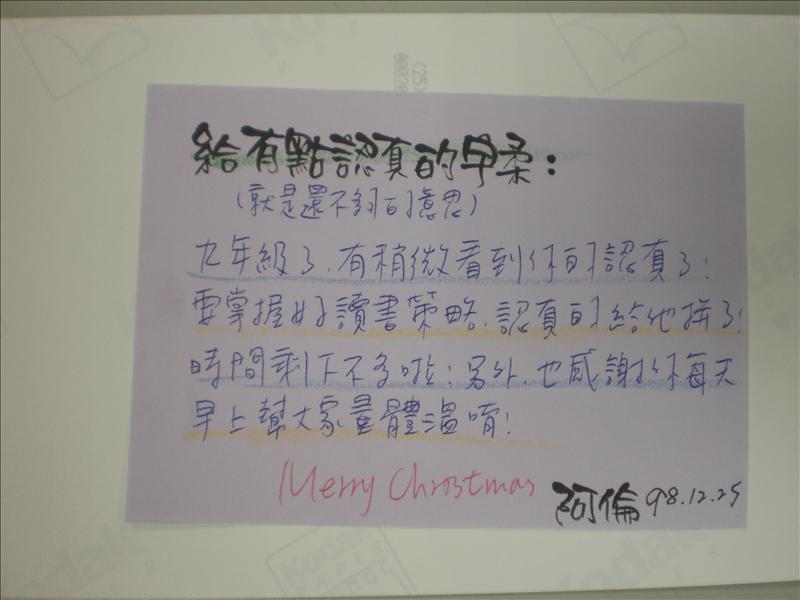 給有點認真的早柔：
（就是還不夠的意思）
九年級了，有稍微看到你的認真了！
要掌握好讀書策略，認真的給他拼了！
時間剩下不多啦！另外，也感謝你每天
早上幫大家量體溫唷！
Merry Christmas
阿倫 98.12.25